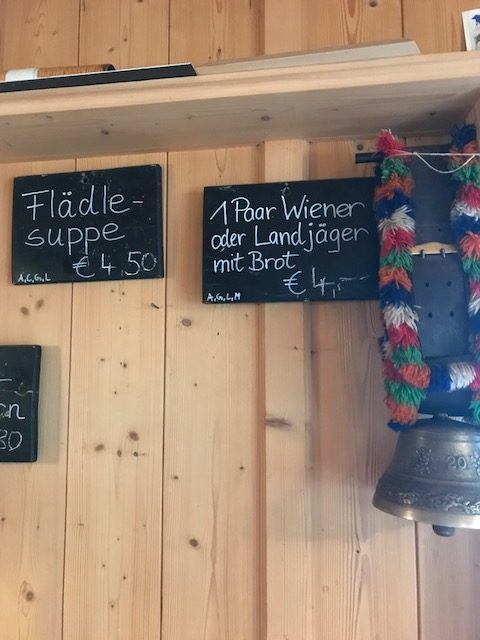 Flädle-
suppe
€ 4,50
A,C,G,L
1 Paar Wiener
oder Landjäger
mit Brot
€ 4,-
A,G,L,M
80
20